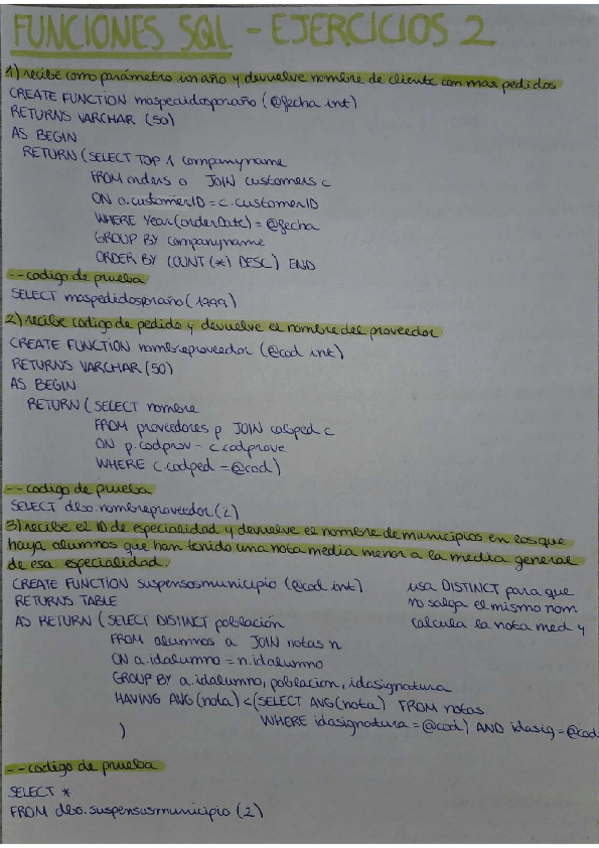 FUNCIONES SQL - EJERCICIOS 2
1) recibe como parámetro un año y devuelve nombre de cliente con mas pedidos
CREATE FUNCTION maspedidosporaño (@fecha int)
RETURNS VARCHAR (50)
AS BEGIN
RETURN (SELECT TOP 1 companyname
FROM orders o JOIN customers c
ON o.customerID = c.customerID
WHERE Year(orderDate) = @fecha
GROUP BY companyname
ORDER BY COUNT (*) DESC) END
-- codigo de prueba
SELECT maspedidosporaño (1999)
2) recibe codigo de pedido y devuelve el nombre del proveedor
CREATE FUNCTION nombreproveedor (@cod int)
RETURNS VARCHAR (50)
AS BEGIN
RETURN (SELECT nombre
FROM proveedores p JOIN cabped c
ON p.codprov - c.codprove
WHERE c.codped = @cod)
-- codigo de prueba
SELECT dbo.nombreproveedor (2)
3) recibe el ID de especialidad y devuelve el nombre de municipios en los que
haya alumnos que han tenido una nota media menor a la media general
de esa especialidad.
CREATE FUNCTION suspensosmunicipio (@cod int) usa DISTINCT para que
RETURNS TABLE no salga el mismo nom
AS RETURN (SELECT DISTINCT población calcula la nota med y
FROM alumnos a JOIN notas n
ON a.idalumno = n.idalumno
GROUP BY a.idalumno, poblacion, idasignatura
HAVING AVG (nota) < (SELECT AVG (nota) FROM notas
WHERE idasignatura = @cod) AND idasig = @cod
)
-- codigo de prueba
SELECT *
FROM dbo.suspensosmunicipio (2)